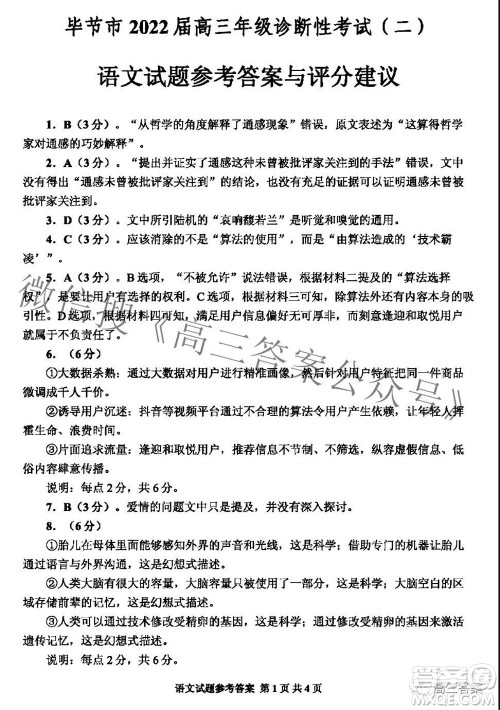 毕节市 2022 届高三年级诊断性考试（二）
语文试题参考答案与评分建议
1．B（3 分）。“从哲学的角度解释了通感现象”错误，原文表述为“这算得哲学
家对通感的巧妙解释”。
2．A（3 分）。“提出并证明这种未曾被批评家关注到的手法”错误，文中
没有得出“通感未曾被批评家关注到”的结论，也没有充足的证据可以证明通感未
曾被批评家关注到。
3．D（3 分）。文中所引陆机的“哀响馥若兰”是听觉和嗅觉的通感。
4．C（3 分）。应该消除的不是“算法的使用”，而是“由算法造成的‘技术霸
凌’”。
5．A（3 分）B 选项，“不被允许”说法错误，根据材料二提及的“算法选择
权”，是要用户有选择的权利。C 选项，根据材料三可知，除算法外还有内容本身的吸
引性。D 选项，根据材料四可知，满足用户信息偏好无可厚非，而刻意迎合取悦用户
就属于不负责任。
6．（6 分）
①大数据杀熟：通过大数据对用户进行精准画像，然后针对用户特征把同一件商品
微调成千人千价。
②诱导用户沉迷：抖音等视频平台以不合理的算法令用户产生依赖，让年轻人挥
霍生命、浪费时间。
③片面追求流量：逢迎和取悦用户，推荐信息不节制、无下限，纵容虚假信息、低
俗内容肆意传播。
说明：每点 2 分，共 6 分。
7．B（3 分）。爱情的问题文中只是提及，并没有深入探讨。
8．（6 分）
①胎儿在母体中能够感知外界的声音和光线，这是事实；设计专门的机器让胎儿
通过语言与外界交流，这是幻想式描述。
②人类大脑的部分记忆能够保存较长时间，这是事实；上一代的记忆可以完整地
遗传给下一代，这是幻想式描述。
③人类可以通过技术修改受精卵的基因，这是事实；通过修改受精卵的基因来激活
遗传记忆，这是幻想式描述。
说明：每点 2 分，共 6 分。
语文试题参考答案 第 1 页 共 4 页
微信搜《高三答案公众号》
高三答案